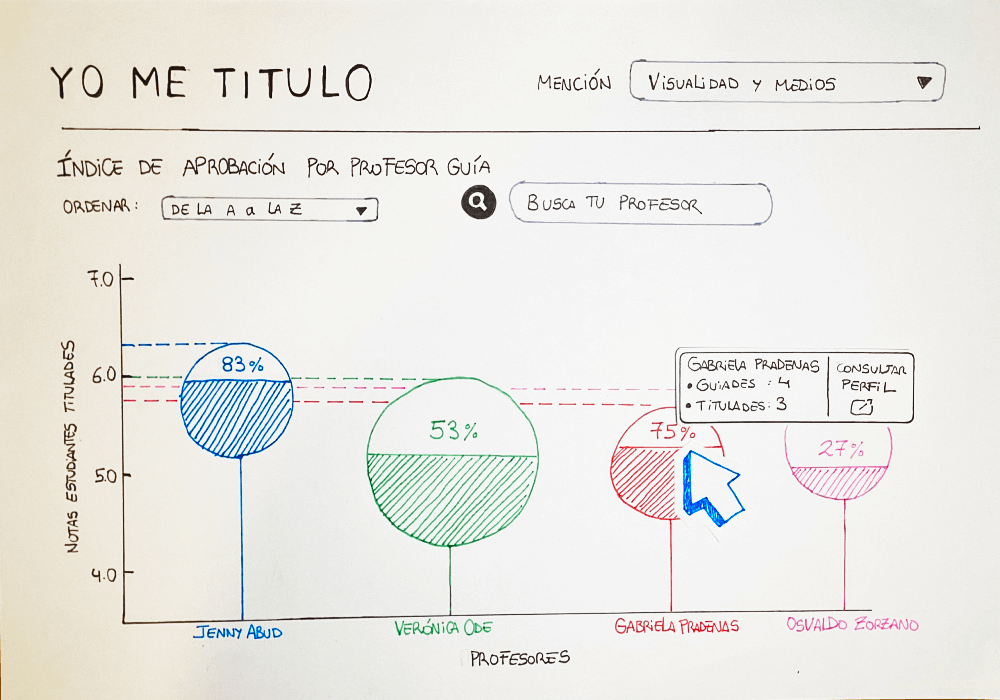 YO ME TITULO
MENCIÓN
VISUALIDAD Y MEDIOS
ÍNDICE DE APROBACIÓN POR PROFESOR GUÍA
ORDENAR:
DE LA A a LA Z
BUSCA TU PROFESOR
7.0
6.0
5.0
4.0
NOTAS ESTUDIANTES TITULADES
83%
53%
75%
27%
GABRIELA PRADENAS
• GUIADES : 4
• TITULADES: 3
CONSULTAR
PERFIL
JENNY ABUD
VERÓNICA ODE
GABRIELA PRADENAS
OSVALDO ZORZANO
PROFESORES